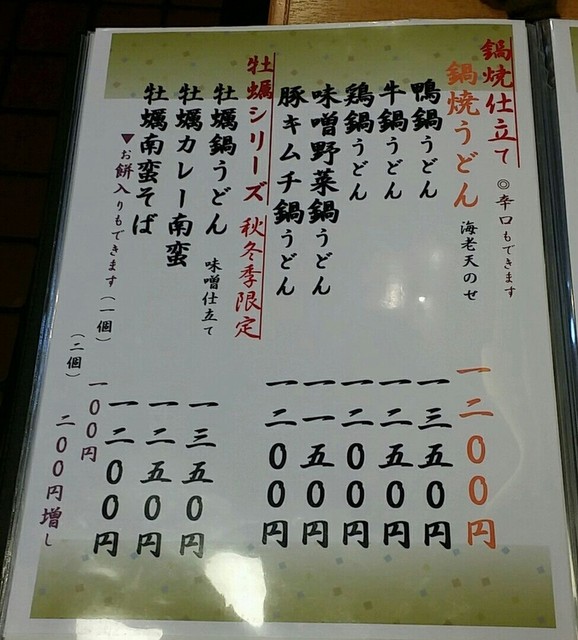 鍋焼仕立て ◎辛口もできます
鍋焼うどん 海老天のせ 一二〇〇円
鴨鍋うどん 一三五〇円
牛鍋うどん 一二五〇円
鶏鍋うどん 一二〇〇円
味噌野菜鍋うどん 一一五〇円
豚キムチ鍋うどん 一二〇〇円
牡蠣シリーズ 秋冬季限定
牡蠣鍋うどん 味噌仕立て 一三五〇円
牡蠣カレー南蛮 一二五〇円
牡蠣南蛮そば 一二〇〇円
▼お餅入りもできます（一個） 一〇〇円
（二個） 二〇〇円増し